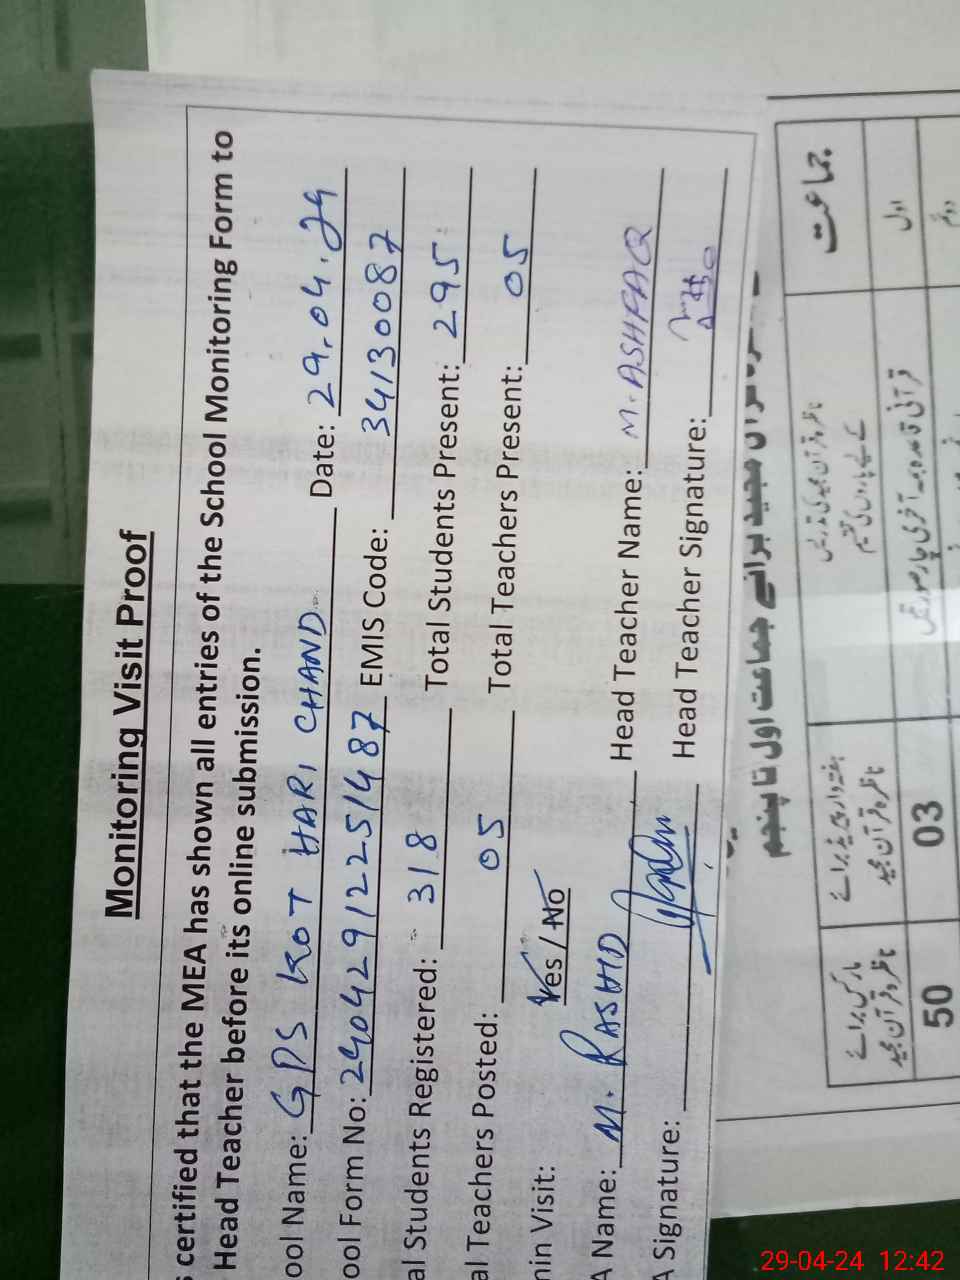 Monitoring Visit Proof
certified that the MEA has shown all entries of the School Monitoring Form to
Head Teacher before its online submission.
ool Name: GPS KOT HARI CHAND Date: 29.04.24
ool Form No: 240429122251487 EMIS Code: 34130087
al Students Registered: 318 Total Students Present: 295
al Teachers Posted: 05 Total Teachers Present: 05
min Visit: Yes / No
A Name: M. RASHID Head Teacher Name: M. ASHFAQ
A Signature: Head Teacher Signature:
مجید برائے جماعت اول تا پنجم
جماعت
ناظرہ قرآن مجید کی تدریس
کے لیے پاروں کی تقسیم
ہفتہ وار پیریڈ برائے
ناظرہ قرآن مجید
مارکس برائے
ناظرہ قرآن مجید
اول
قرآنی قاعدہ بمعہ آخری پارہ
03
50
دوم
29-04-24 12:42